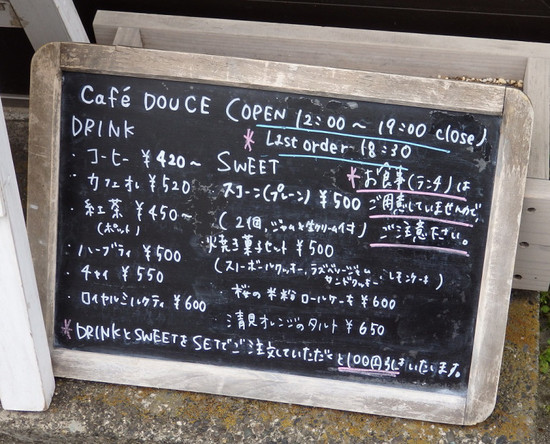 Café DOUCE (OPEN 12:00 ~ 19:00 close)
* Last order 18:30
DRINK
・コーヒー ¥420~
・カフェオレ ¥520
・紅茶 ¥450~
(ポット)
・ハーブティ ¥500
・チャイ ¥550
・ロイヤルミルクティ ¥600
SWEET
・スコーン(プレーン) ¥500
(2個、ジャムと生クリーム付)
・焼き菓子セット ¥500
(スノーボールクッキー、ラズベリージャムサンドクッキー、レモンケーキ)
・桜の米粉ロールケーキ ¥600
・清見オレンジのタルト ¥650
*お食事(ランチ)は
ご用意していませんので
ご注意下さい。
*DRINKとSWEETをSETでご注文していただくと100円引きいたします。